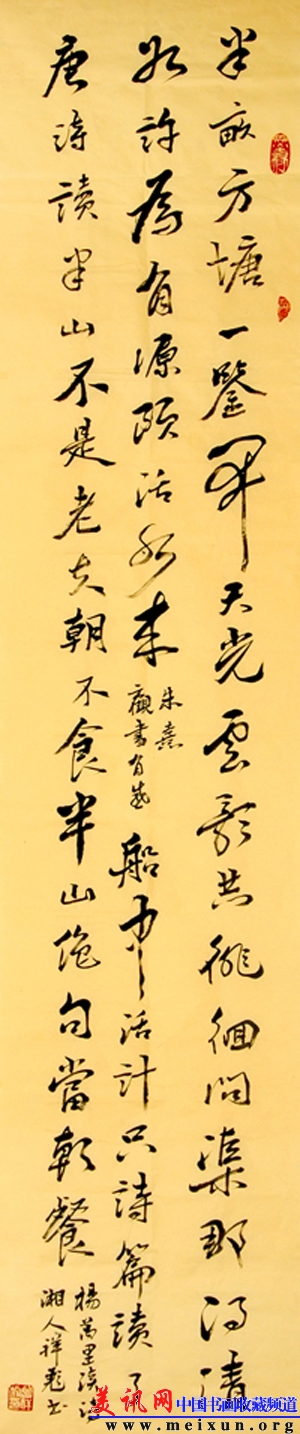 半畝方塘一鑒開天光雲影共徘徊問渠那得清
如許為有源頭活水來
朱熹
觀書有感
船中活計只詩篇讀了
唐詩讀半山不是老夫朝不食半山絶句當朝餐
楊萬里讀詩
湘人祥彪书
美讯网 中国书画收藏频道
www.meixun.org